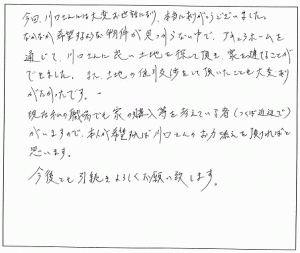 今回、川口さんには大変お世話になり、本当にありがとうございました。
なかなか希望するような物件が見つからない中で、アキュラホームを
通じて、川口さんに良い土地を探して頂き、家を建てることが
できました。また、土地の値引交渉をして頂いたことも大変あり
がたかったです。
現在私の職場でも家の購入等を考えている者(つくば近辺で)
がいますので、本人が希望すれば川口さんのお力添えを頂ければと
思います。
今後とも引続きよろしくお願い致します。